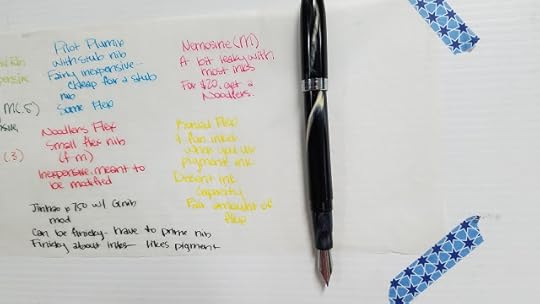 Pilot Plumix
with stub nib
Fairly inexpensive-
cheap for a stub
nib
Some Flex
Nemosine (M)
A bit leaky with
most inks
For $20, get a
Noodlers.
M(.5)
(.3)
Noodlers Flex
Small flex nib
(f-m)
Inexpensive, meant to
be modified
Flex
when you use
pigment ink
Decent ink
capacity
Fair amount of
flex
Jinhao x750 w/ G nib
mod
Can be finicky- have to prime nib
Finicky about inks- likes pigment